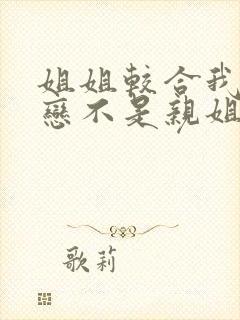 姐姐較合我
戀不是親姐
歌莉